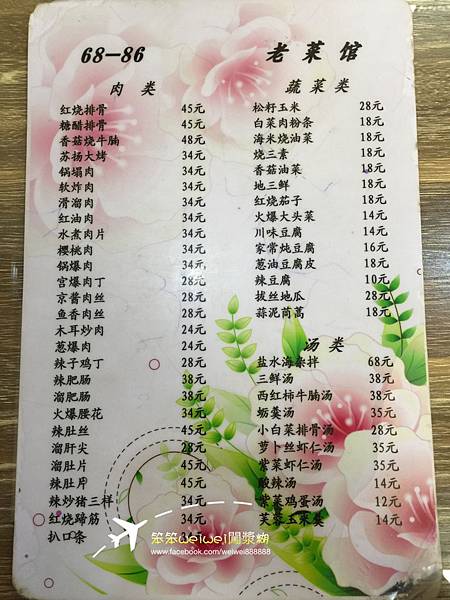 68—86 老菜馆
肉 类
红烧排骨 45元
糖醋排骨 45元
香菇烧牛腩 48元
苏扬大烤 34元
锅塌肉 34元
软炸肉 34元
滑溜肉 34元
红油肉 34元
水煮肉片 34元
樱桃肉 34元
锅爆肉 34元
宫爆肉丁 28元
京酱肉丝 28元
鱼香肉丝 28元
木耳炒肉 24元
葱爆肉 24元
辣子鸡丁 28元
辣肥肠 38元
溜肥肠 38元
火爆腰花 34元
辣肚丝 45元
溜肝尖 28元
溜肚片 45元
辣肚片 45元
辣炒猪三样 34元
红烧蹄筋 34元
扒口条
蔬 菜 类
松籽玉米 28元
白菜肉粉条 18元
海米烧油菜 18元
烧三素 18元
香菇油菜 18元
地三鲜 18元
红烧茄子 18元
火爆大头菜 14元
川味豆腐 14元
家常炖豆腐 16元
葱油豆腐皮 18元
辣豆腐 10元
拔丝地瓜 28元
蒜泥茼蒿 18元
汤 类
盐水海杂拌 68元
三鲜汤 38元
西红柿牛腩汤 38元
蛎羹汤 35元
小白菜排骨汤 28元
萝卜丝虾仁汤 35元
紫菜虾仁汤 35元
酸辣汤 14元
紫菜鸡蛋汤 12元
芙蓉玉米羹 14元
笨笨weiwei闖漿糊
www.facebook.com/weiwei888888